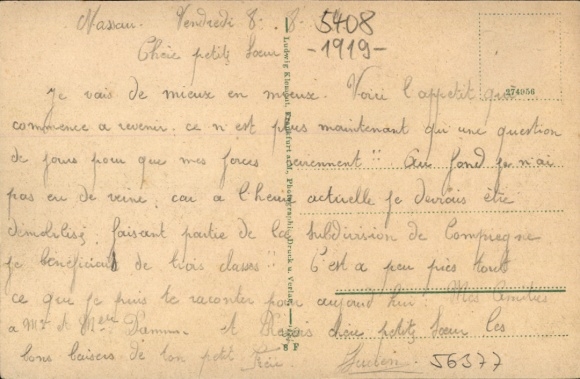 Nassau. Vendredi 8. 8.
5408
-1919-
Chère petite Sœur
Je vais de mieux en mieux. Voici l'appetit qui
commence a revenir, ce n'est plus maintenant qu'une question
de jours pour que mes forces reviennent !! Au fond je n'ai
pas eu de veine, car a l'heure actuelle je devrais être
demobilisé, faisant partie de la subdivision de Compiegne
je beneficiais de trois classes !! C'est a peu près tout
ce que je puis te raconter pour aujourd'hui. Mes amities
a Mr & Mme Et Reçois chère petite Sœur les
bons baisers de ton petit Frère
56377
274956
Ludwig Klement, Frankfurt a. M., Photographie, Druck u. Verlag